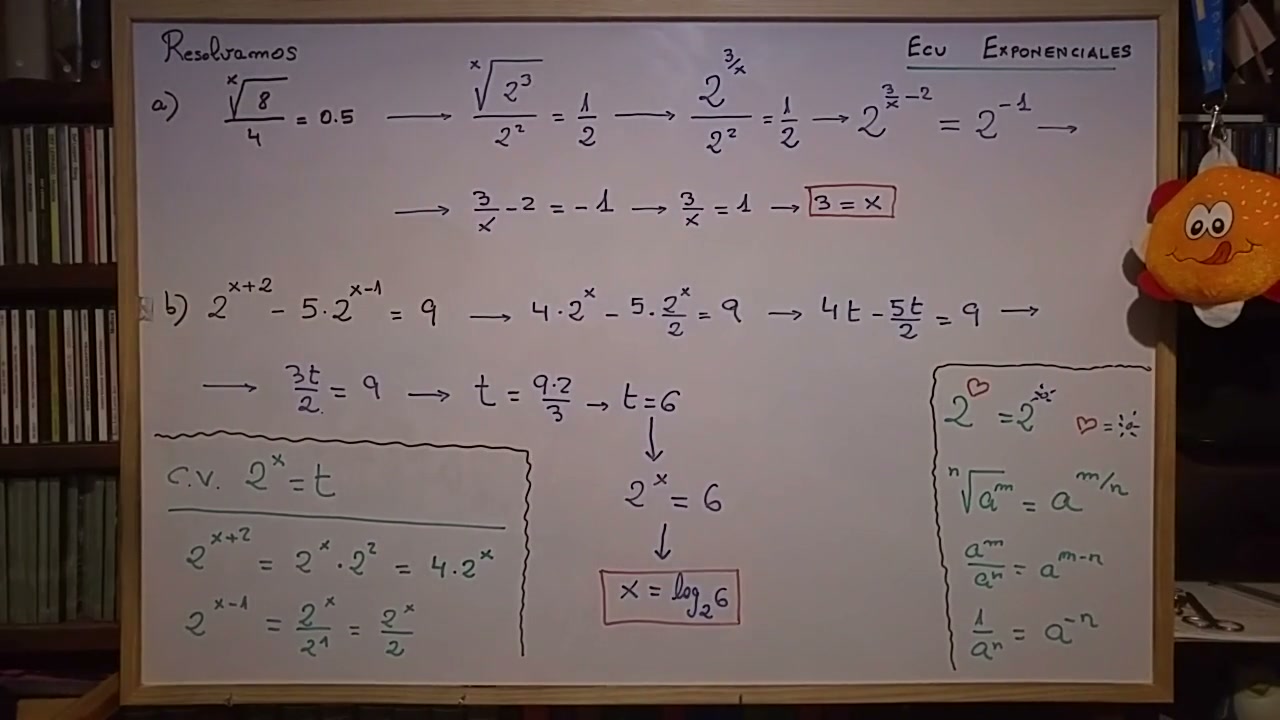 Resolvamos
Ecu Exponenciales
a) ˣ√8 / 4 = 0.5 → ˣ√2³ / 2² = 1/2 → 2^(3/x) / 2² = 1/2 → 2^(3/x − 2) = 2^(−1) →
→ 3/x − 2 = −1 → 3/x = 1 → 3 = x
b) 2^(x+2) − 5·2^(x−1) = 9 → 4·2^x − 5·2^x/2 = 9 → 4t − 5t/2 = 9 →
→ 3t/2 = 9 → t = 9·2/3 → t = 6
↓
2^x = 6
↓
x = log₂6
C.V. 2^x = t
2^(x+2) = 2^x · 2² = 4·2^x
2^(x−1) = 2^x/2¹ = 2^x/2
2^♡ = 2^☼ ♡ = ☼
ⁿ√a^m = a^(m/n)
a^m/a^n = a^(m−n)
1/a^n = a^(−n)